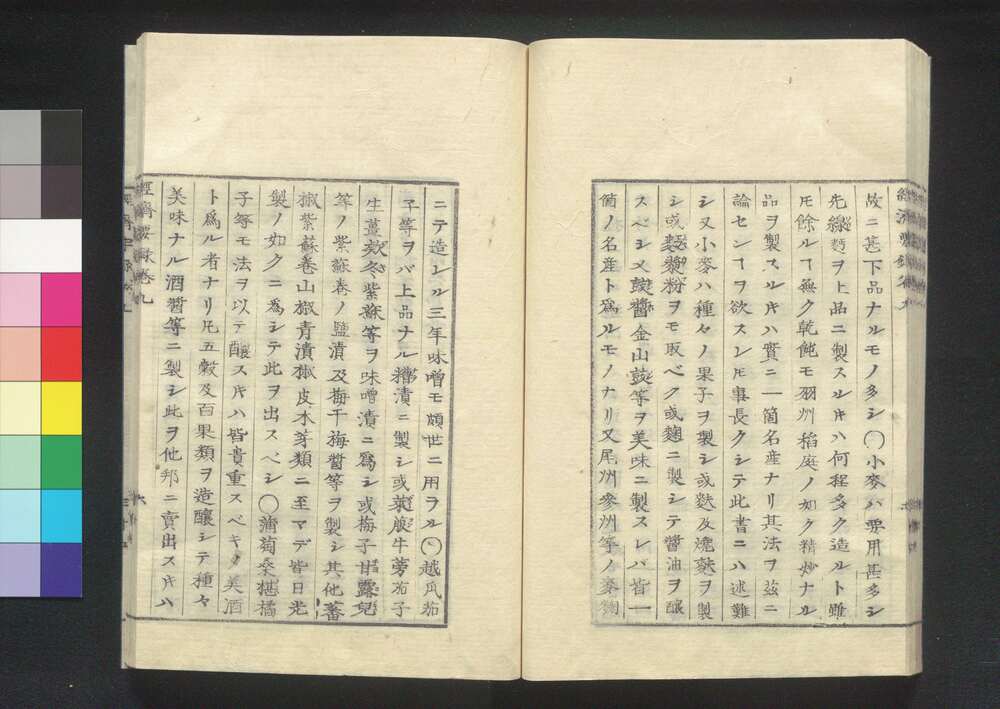 故ニ甚下品ナルモノ多シ〇小麥ハ要用甚多シ
先線類ヲ上品ニ製スルキハ何程多ク造ルト雖
𪜈餘ルヿ無ク乾飩モ羽州稲庭ノ如ク精妙ナル
品ヲ製スルキハ實ニ一箇名産ナリ其法ヲ茲ニ
論センヿヲ欲スレ𪜈事長クシテ此書ニハ述難
シ又小麥ハ種々ノ果子ヲ製シ或麩及燒麩ヲ製
シ或麪漿粉ヲモ取ベク或麹ニ製シテ醤油ヲ釀
スベシ又豉醬金山豉等ヲ美味ニ製スレバ皆一
箇ノ名産ト爲ルモノナリ又尾州參州等ノ麥麹
ニテ造レル三年味噌モ頗世ニ用ラル〇越瓜茄
子等ヲバ上品ナル糟漬ニ製シ或萊菔牛蒡茄子
生薑欵冬紫蘇等ヲ味噌漬ニ爲シ或梅子甘露兒
等ノ紫蘇卷ノ鹽漬及梅干梅醬等ヲ製シ其他蕃
椒紫蘇卷山椒青漬椒皮木芽類ニ至マデ皆日光
製ノ如クニ爲シテ此ヲ出スベシ〇蒲萄桑椹橘
子等モ法ヲ以テ釀スキハ皆貴重スベキノ美酒
ト爲ル者ナリ𪜈五穀及百果類ヲ造釀シテ種々
美味ナル酒醬等ニ製シ此ヲ他邦ニ賣出スキハ
經濟要録卷九
六